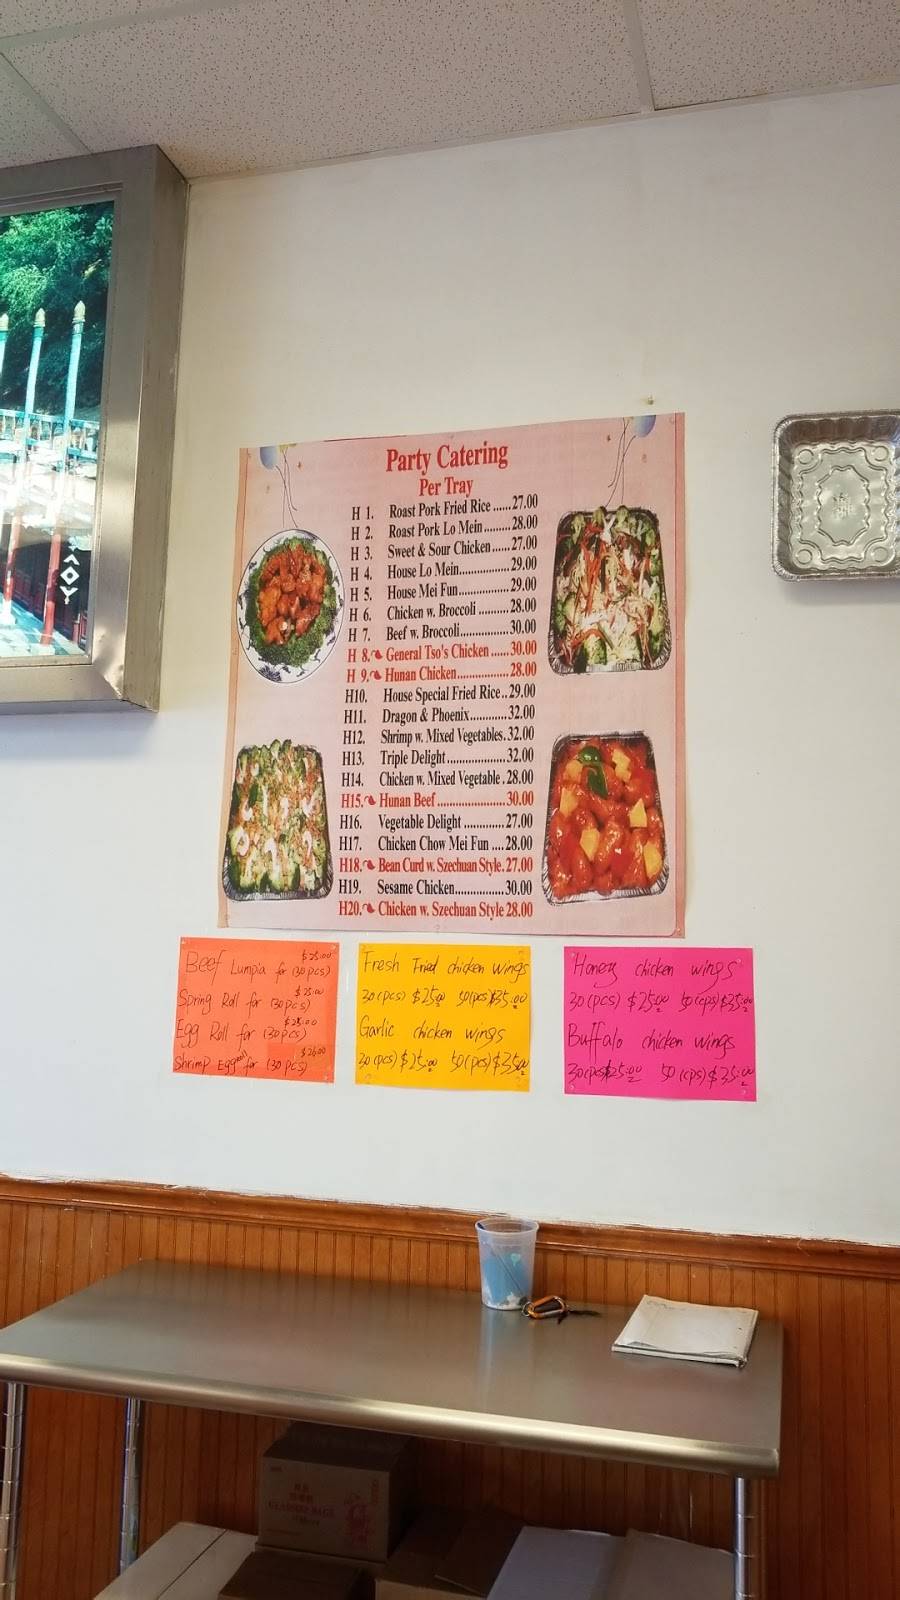 Party Catering
Per Tray
H 1. Roast Pork Fried Rice ......27.00
H 2. Roast Pork Lo Mein.........28.00
H 3. Sweet & Sour Chicken......27.00
H 4. House Lo Mein...................29.00
H 5. House Mei Fun...................29.00
H 6. Chicken w. Broccoli .........28.00
H 7. Beef w. Broccoli.................30.00
H 8. General Tso's Chicken ......30.00
H 9. Hunan Chicken...................28.00
H10. House Special Fried Rice..29.00
H11. Dragon & Phoenix............32.00
H12. Shrimp w. Mixed Vegetables.32.00
H13. Triple Delight.....................32.00
H14. Chicken w. Mixed Vegetable .28.00
H15. Hunan Beef ........................30.00
H16. Vegetable Delight ..............27.00
H17. Chicken Chow Mei Fun ....28.00
H18. Bean Curd w. Szechuan Style.27.00
H19. Sesame Chicken.................30.00
H20. Chicken w. Szechuan Style 28.00
Beef Lumpia for (30pcs) $25.00
Spring Roll for (30pcs) $25.00
Egg Roll for (30pcs) $25.00
Shrimp Egg roll for (30pcs) $26.00
Fresh Fried chicken wings
30(pcs) $25.00 50(pcs)$35.00
Garlic chicken wings
30(pcs) $25.00 50(pcs)$35.00
Honey chicken wings
30(pcs) $25.00 50(cps)$35.00
Buffalo chicken wings
30(pcs)$25.00 50(cps)$35.00